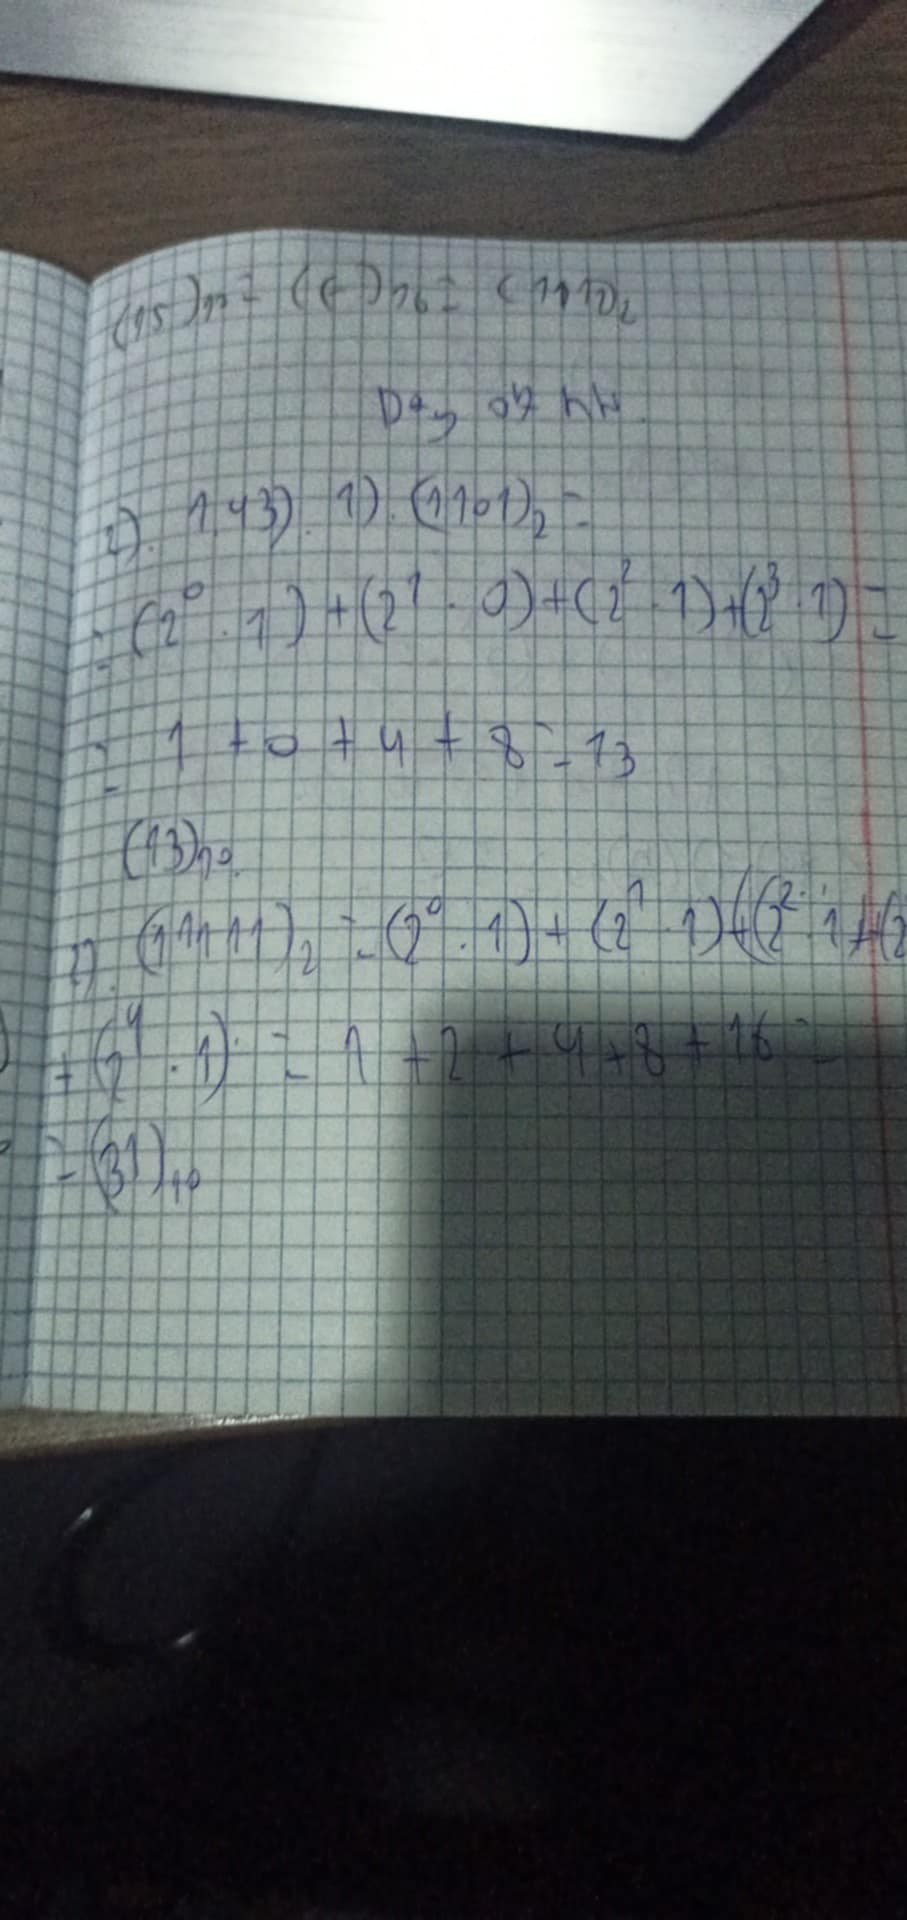 (15)₁₀ = (F)₁₆ = (111
Day of HW.
2). 1.43). 1). (1101)₂ =
= (2⁰ · 1) + (2¹ · 0) + (2² · 1) + (2³ · 1) =
= 1 + 0 + 4 + 8 = 13
(13)₁₀.
2). (11111)₂ = (2⁰ · 1) + (2¹ · 1) + (2² · 1) + (2
+ (2⁴ · 1) = 1 + 2 + 4 + 8 + 16 =
= (31)₁₀